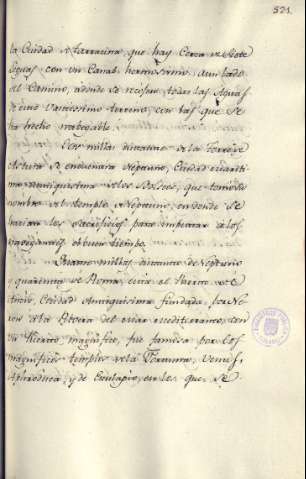 521.
la Ciudad de Tarracina, que hay cerca de siete
leguas, con un Canal hermosisimo à un lado
del Camino, adonde se recojen todas las Aguas
de este vastissimo terreno, con las que se
ha hecho
Seis millas distante de la Torre de
Astura se encuentra Neptuno, Ciudad marití-
ma antiquisima de los que tomò su
nombre del templo de Neptuno, en donde se
hacian los Sacrificios para impetrar a los
Navegantes el buen tiempo.
Quatro millas distante de Neptuno
y quarenta de Roma, està el Puerto de
Ancio, Ciudad Antiquisima fundada, por Ne-
ron à la Rivera del mar mediterraneo, con
un Puerto, magnifico, fue famosa por los
magnificos templos de la Fortuna, Venus,
Aphrodisia, y de Esculapio, en los que se